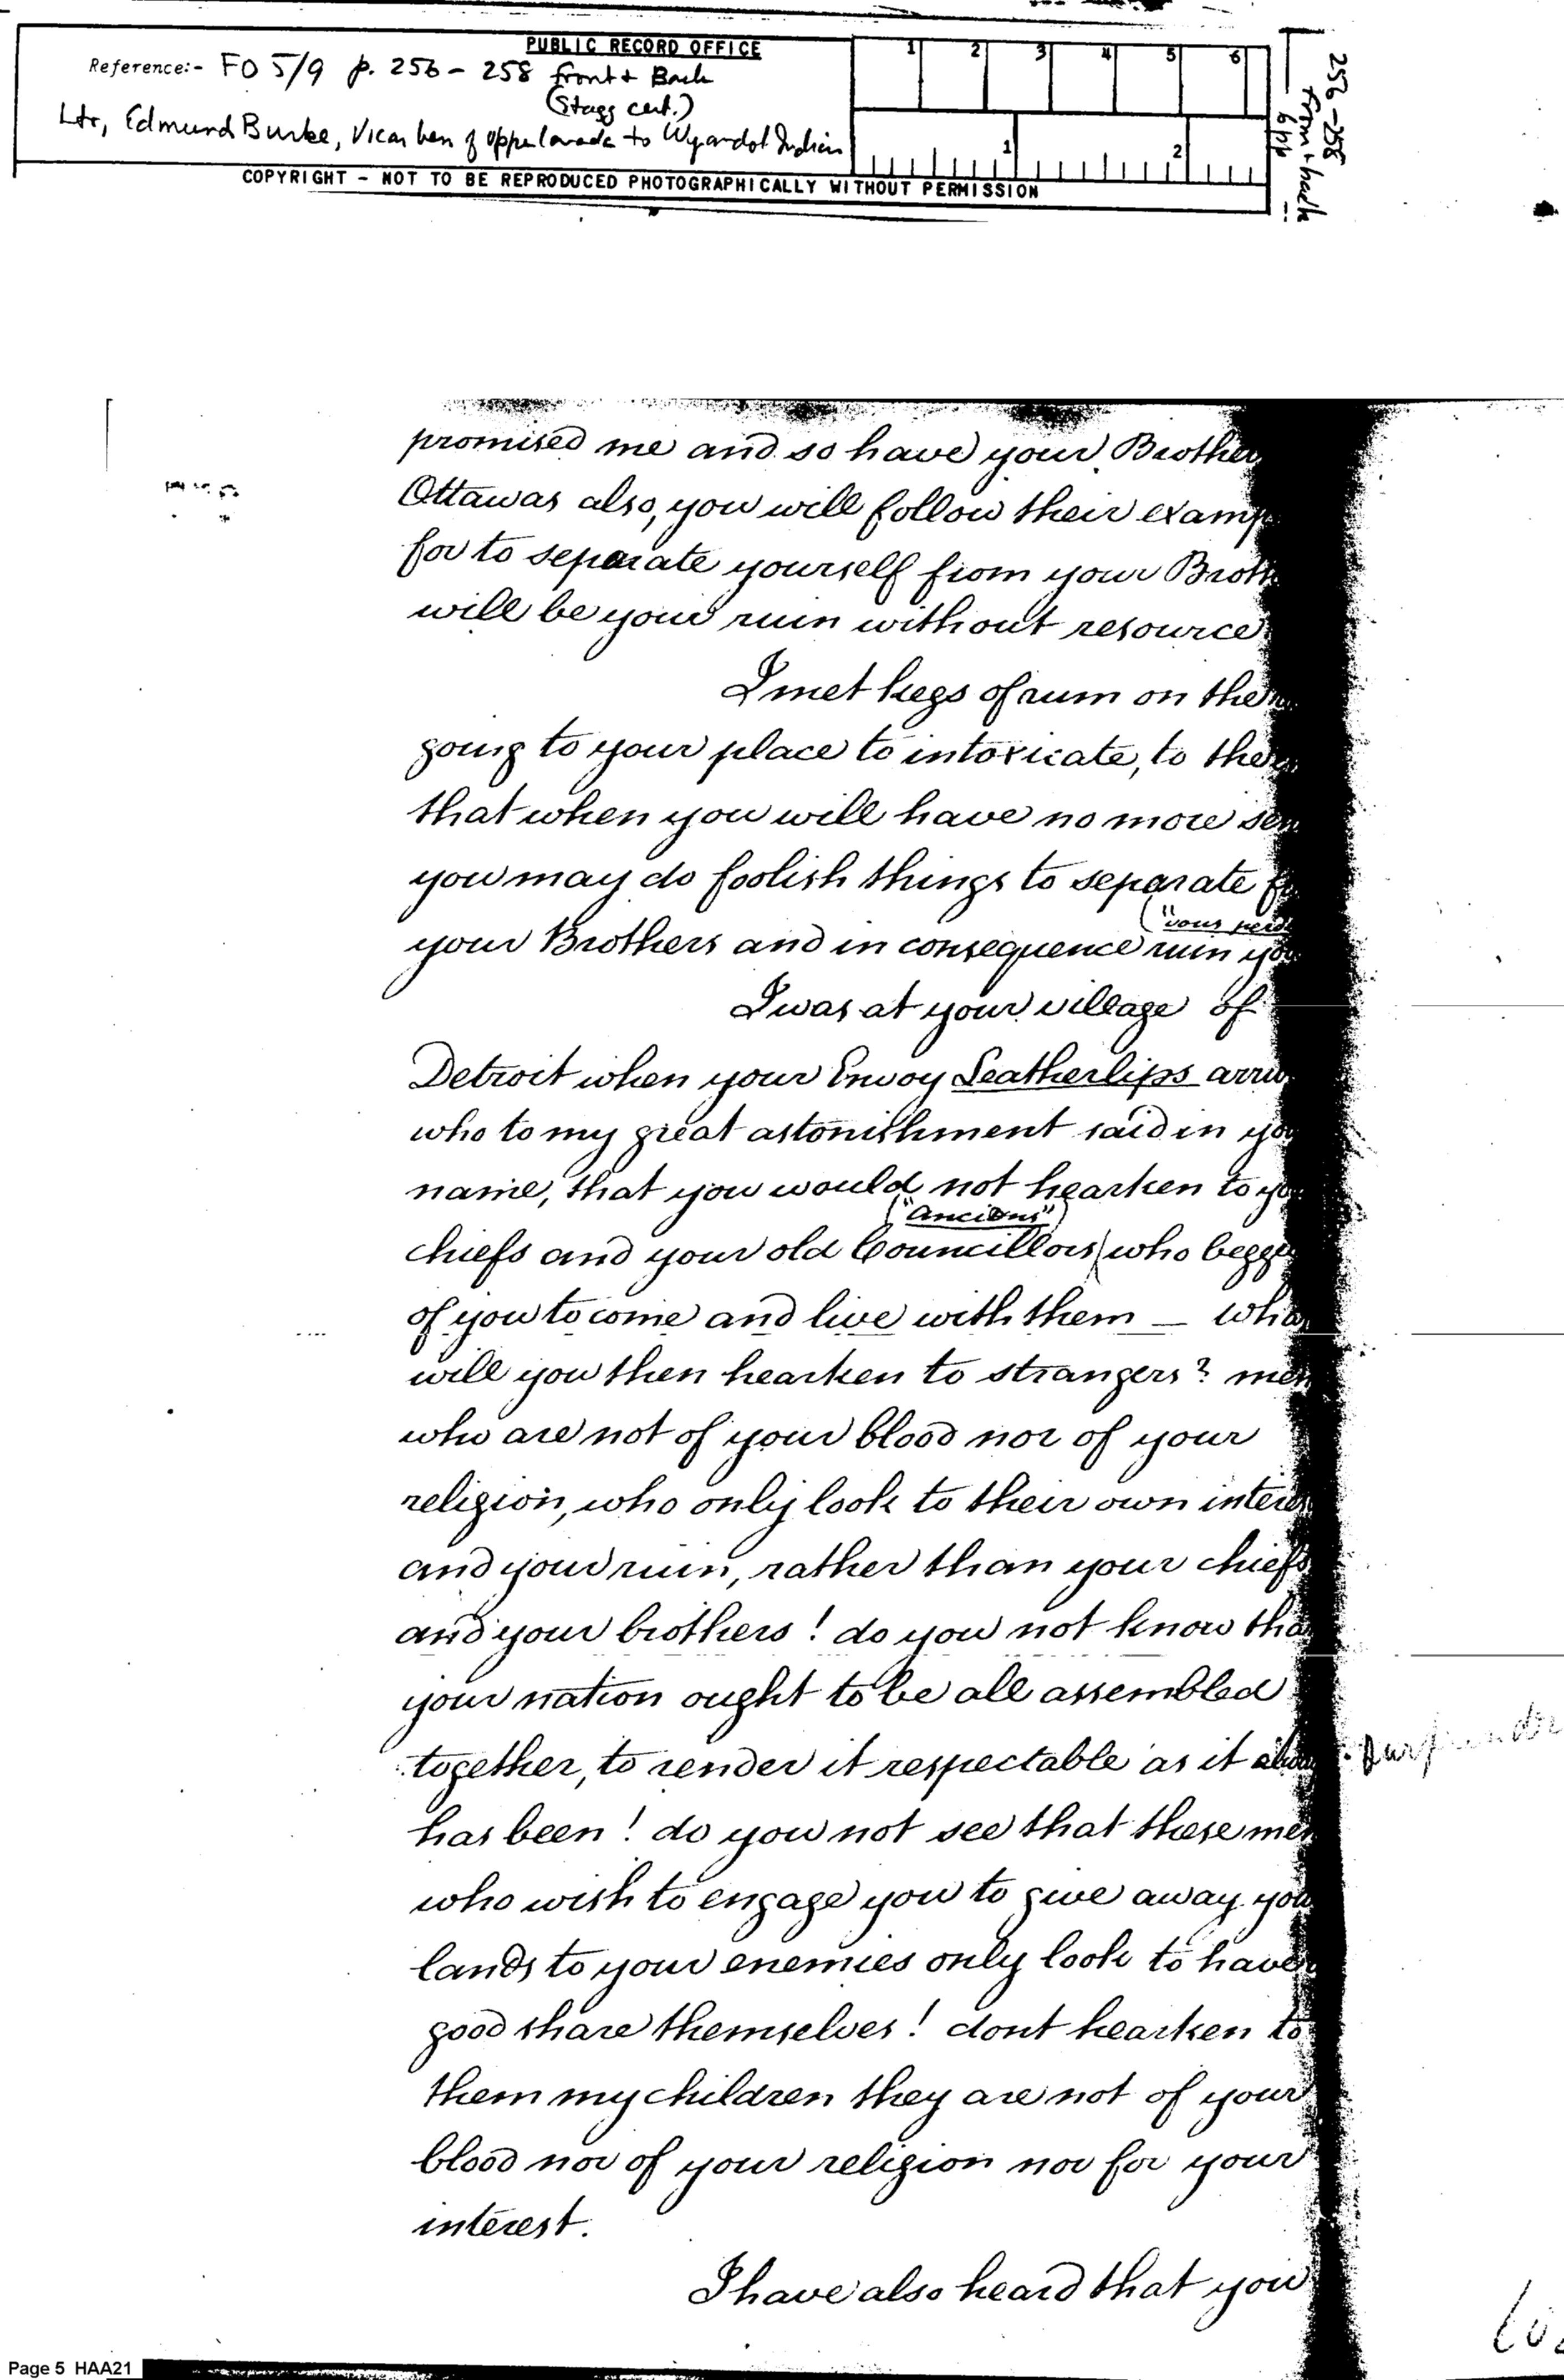 PUBLIC RECORD OFFICE
Reference:- FO 5/9 p. 256 - 258 front + Back
(Stagg cert.)
Ltr, Edmund Burke, Vicar Gen of Upper Canada to Wyandot Indian
COPYRIGHT - NOT TO BE REPRODUCED PHOTOGRAPHICALLY WITHOUT PERMISSION
1 2 3 4 5 6
1 2
256-258
front + back
promised me and so have your Brother
Ottawas also, you will follow their examp
for to separate yourself from your Broth
will be your ruin without resource
I met kegs of rum on the
going to your place to intoxicate, to the
that when you will have no more sen
you may do foolish things to separate f
("vous perd
your Brothers and in consequence ruin you
I was at your village of
Detroit when your Envoy Leatherlips arriv
who to my great astonishment said in you
name, that you would not hearken to yo
("Anciens")
chiefs and your old Councillors who begge
of you to come and live with them — wha
will you then hearken to strangers? men
who are not of your blood nor of your
religion, who only look to their own interes
and your ruin, rather than your chiefs
and your brothers! do you not know tha
your nation ought to be all assembled
together, to render it respectable as it alwa
has been! do you not see that these men
who wish to engage you to give away you
lands to your enemies only look to have
good share themselves! dont hearken to
them my children they are not of your
blood nor of your religion nor for your
interest.
I have also heard that you
Page 5 HAA21